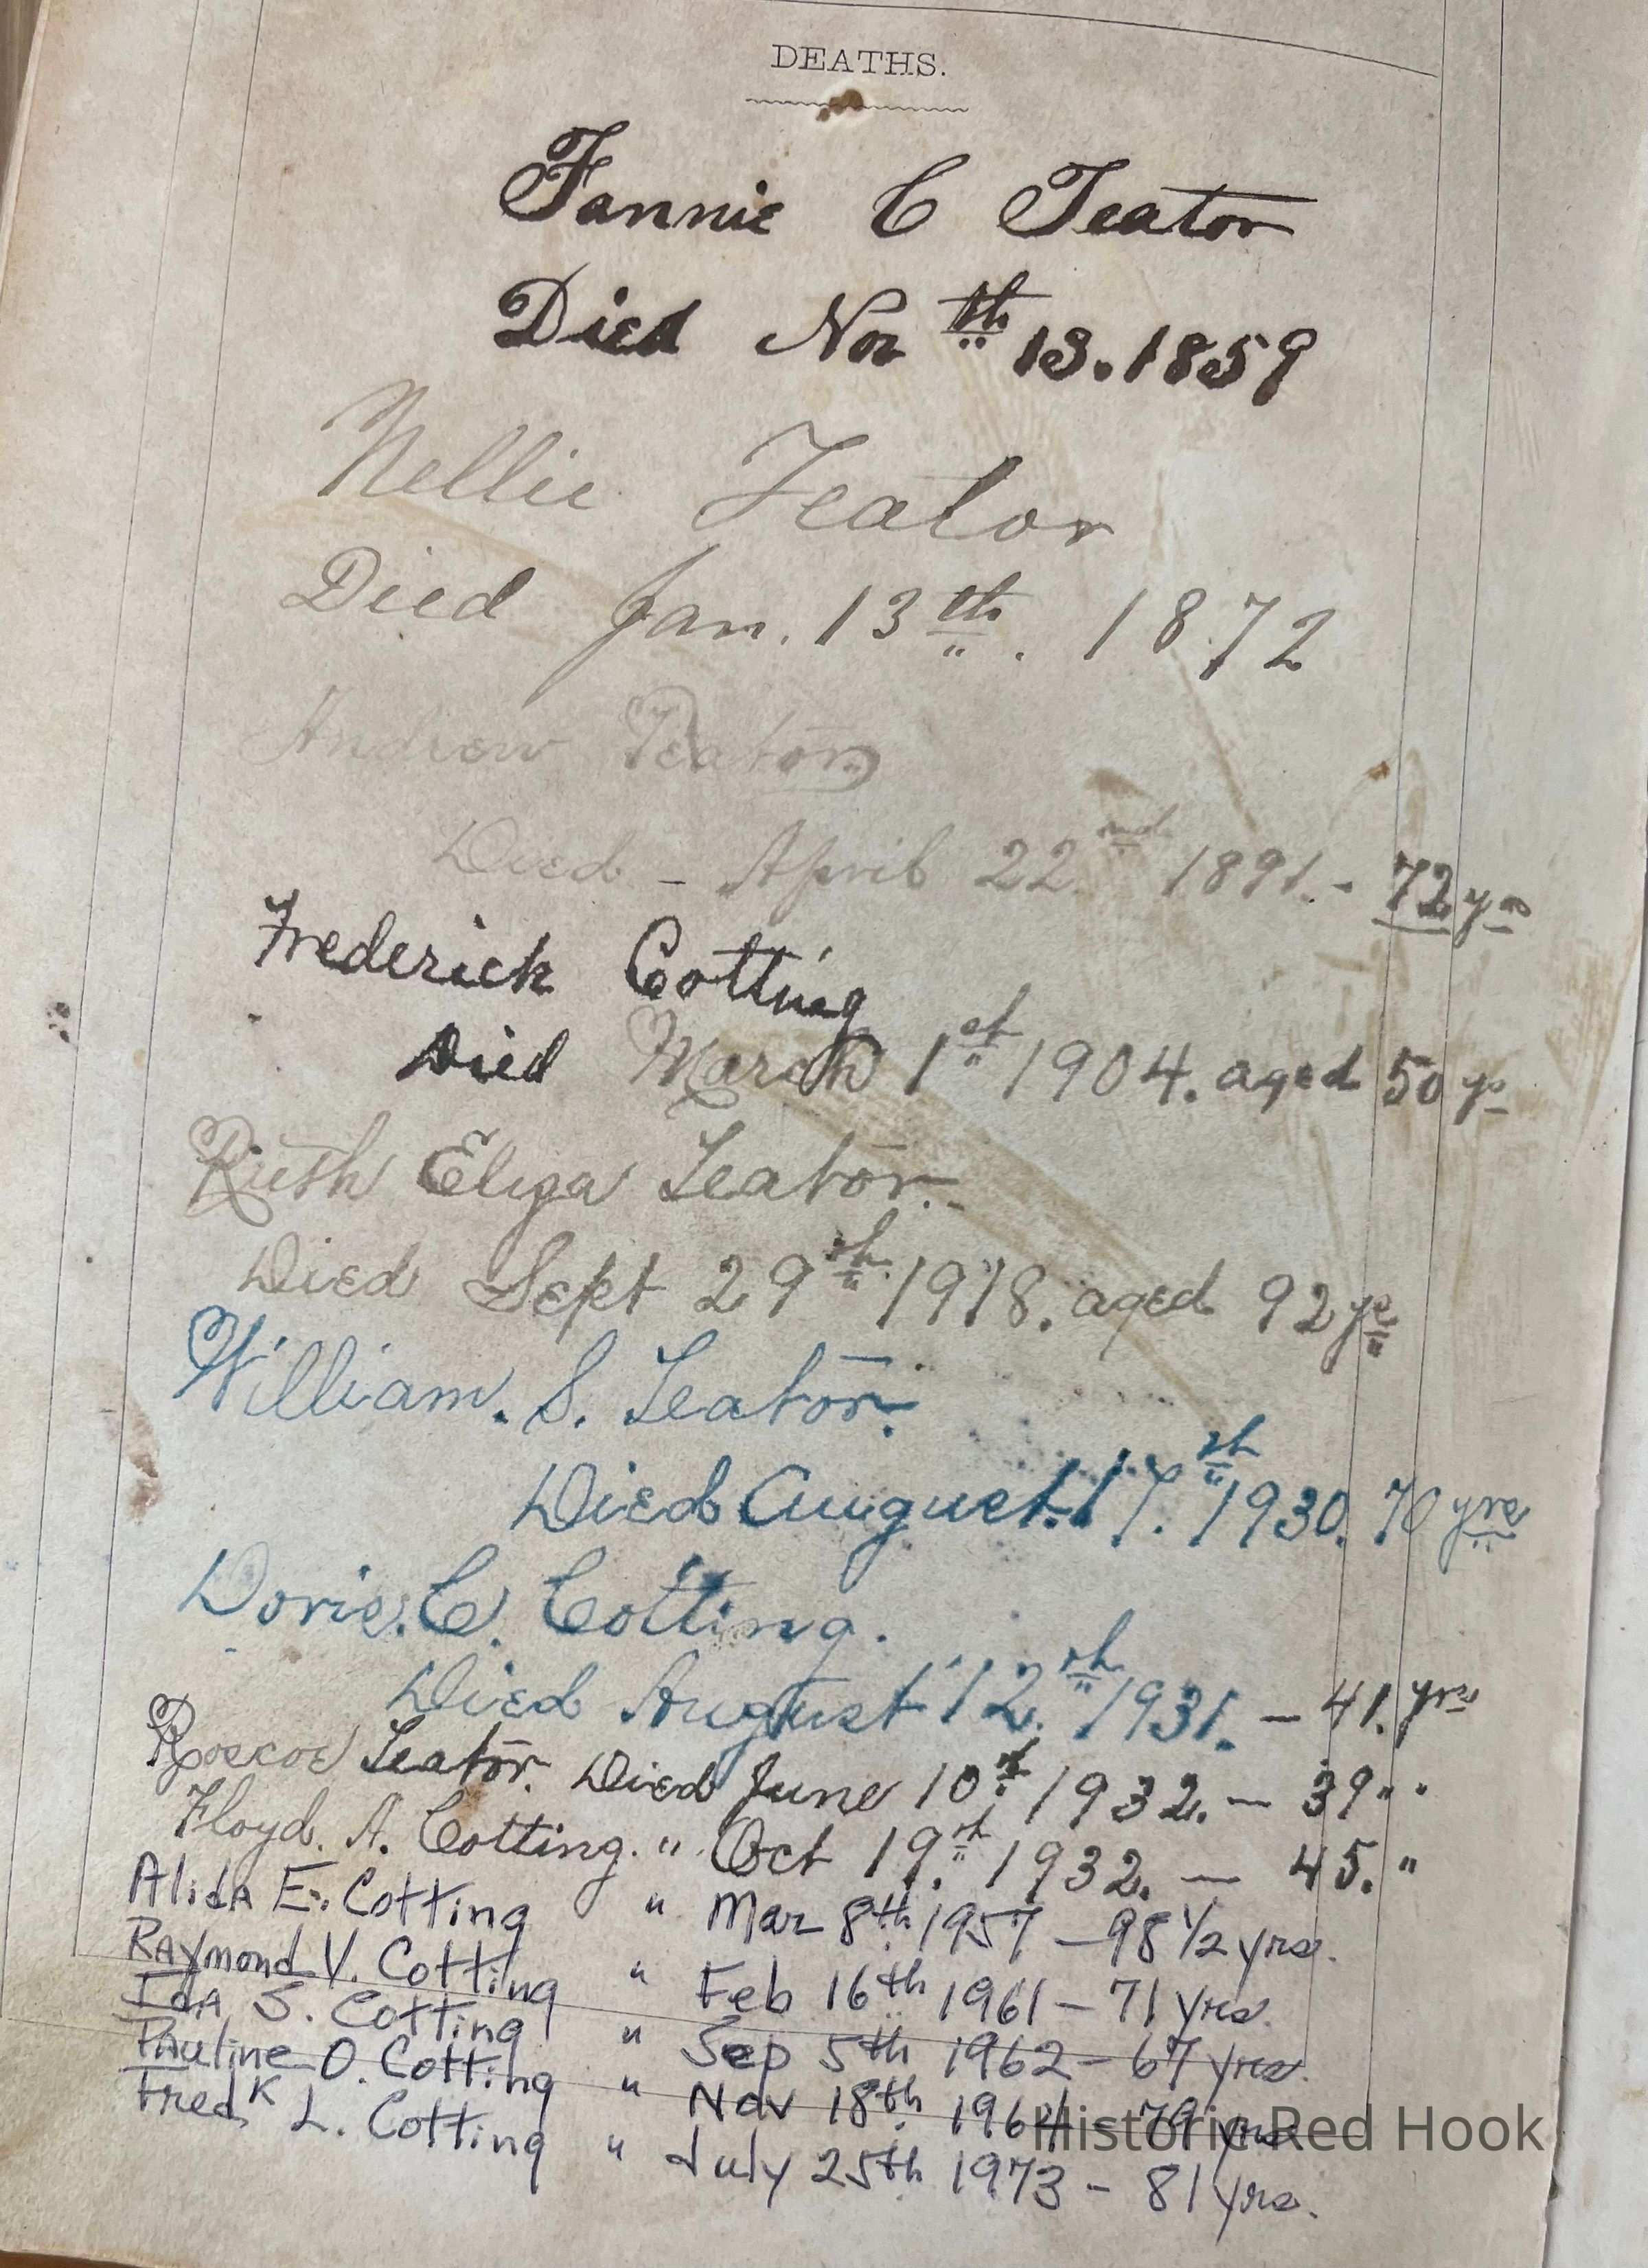 DEATHS.
Fannie C Teator
Died Nov th 13. 1859
Nellie Teator
Died Jan. 13th. 1872
Andrew Teator
Died - April 22nd 1891. - 72 yrs
Frederick Cotting
Died March 1st 1904. aged 50 ys
Ruth Eliza Teator.
Died Sept 29th 1918. aged 92 yrs
William. S. Teator.
Died August. 17.th 1930. 70 yrs
Doris. C. Cotting.
Died August 12.th 1931. - 41. yrs
Roscoe Teator. Died June 10th 1932. - 39 " "
Floyd. A. Cotting. " Oct 19.th 1932. - 45. "
Alida E. Cotting " Mar 8th 1957 - 98 1/2 yrs.
Raymond V. Cotting " Feb 16th 1961 - 71 yrs.
Ida S. Cotting " Sep 5th 1962 - 67 yrs.
Pauline O. Cotting " Nov 18th 1964 - 79 yrs
Fredk L. Cotting " July 25th 1973 - 81 yrs.
Historic Red Hook